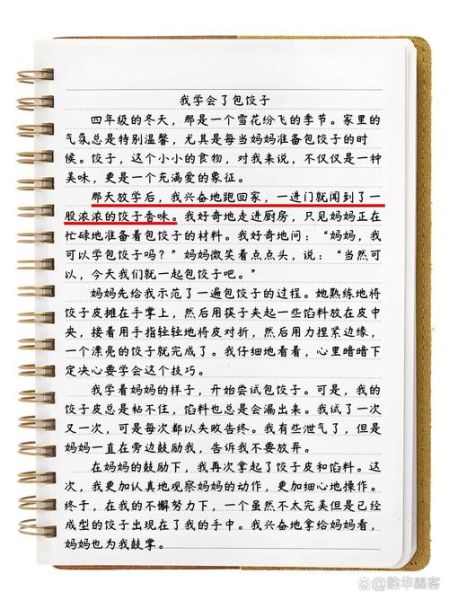 我学会了包饺子
四年级的冬天，那是一个雪花纷飞的季节。家里的
气氛总是特别温馨，尤其是每当妈妈准备包饺子的时
候。饺子，这个小小的食物，对我来说，不仅仅是一种
美味，更是一个充满爱的象征。
那天放学后，我兴奋地跑回家，一进门就闻到了一
股浓浓的饺子香味。我好奇地走进厨房，只见妈妈正在
忙碌地准备着包饺子的材料。我好奇地问：“妈妈，我
可以学包饺子吗？”妈妈微笑着点点头，说：“当然可
以，今天我们就一起包饺子吧。”
妈妈先给我示范了一遍包饺子的过程。她熟练地将
饺子皮摊在手掌上，然后用筷子夹起一些馅料放在皮中
央，接着用手指轻轻地将皮对折，然后用力捏紧边缘，
一个漂亮的饺子就完成了。我仔细地看着，心里暗暗下
定决心要学会这个技巧。
我学着妈妈的样子，开始尝试包饺子。可是，我的
饺子皮总是粘不住，馅料也总是会漏出来。我试了一次
又一次，可是每次都以失败告终。我有些泄气了，但是
妈妈一直在旁边鼓励我，告诉我不要放弃。
在妈妈的鼓励下，我再次拿起了饺子皮和馅料。这
次，我更加认真地观察妈妈的动作，更加细心地操作。
终于，在我的不懈努力下，一个虽然不太完美但是已经
成型的饺子出现在了我的手中。我兴奋地拿给妈妈看，
妈妈也为我鼓掌。